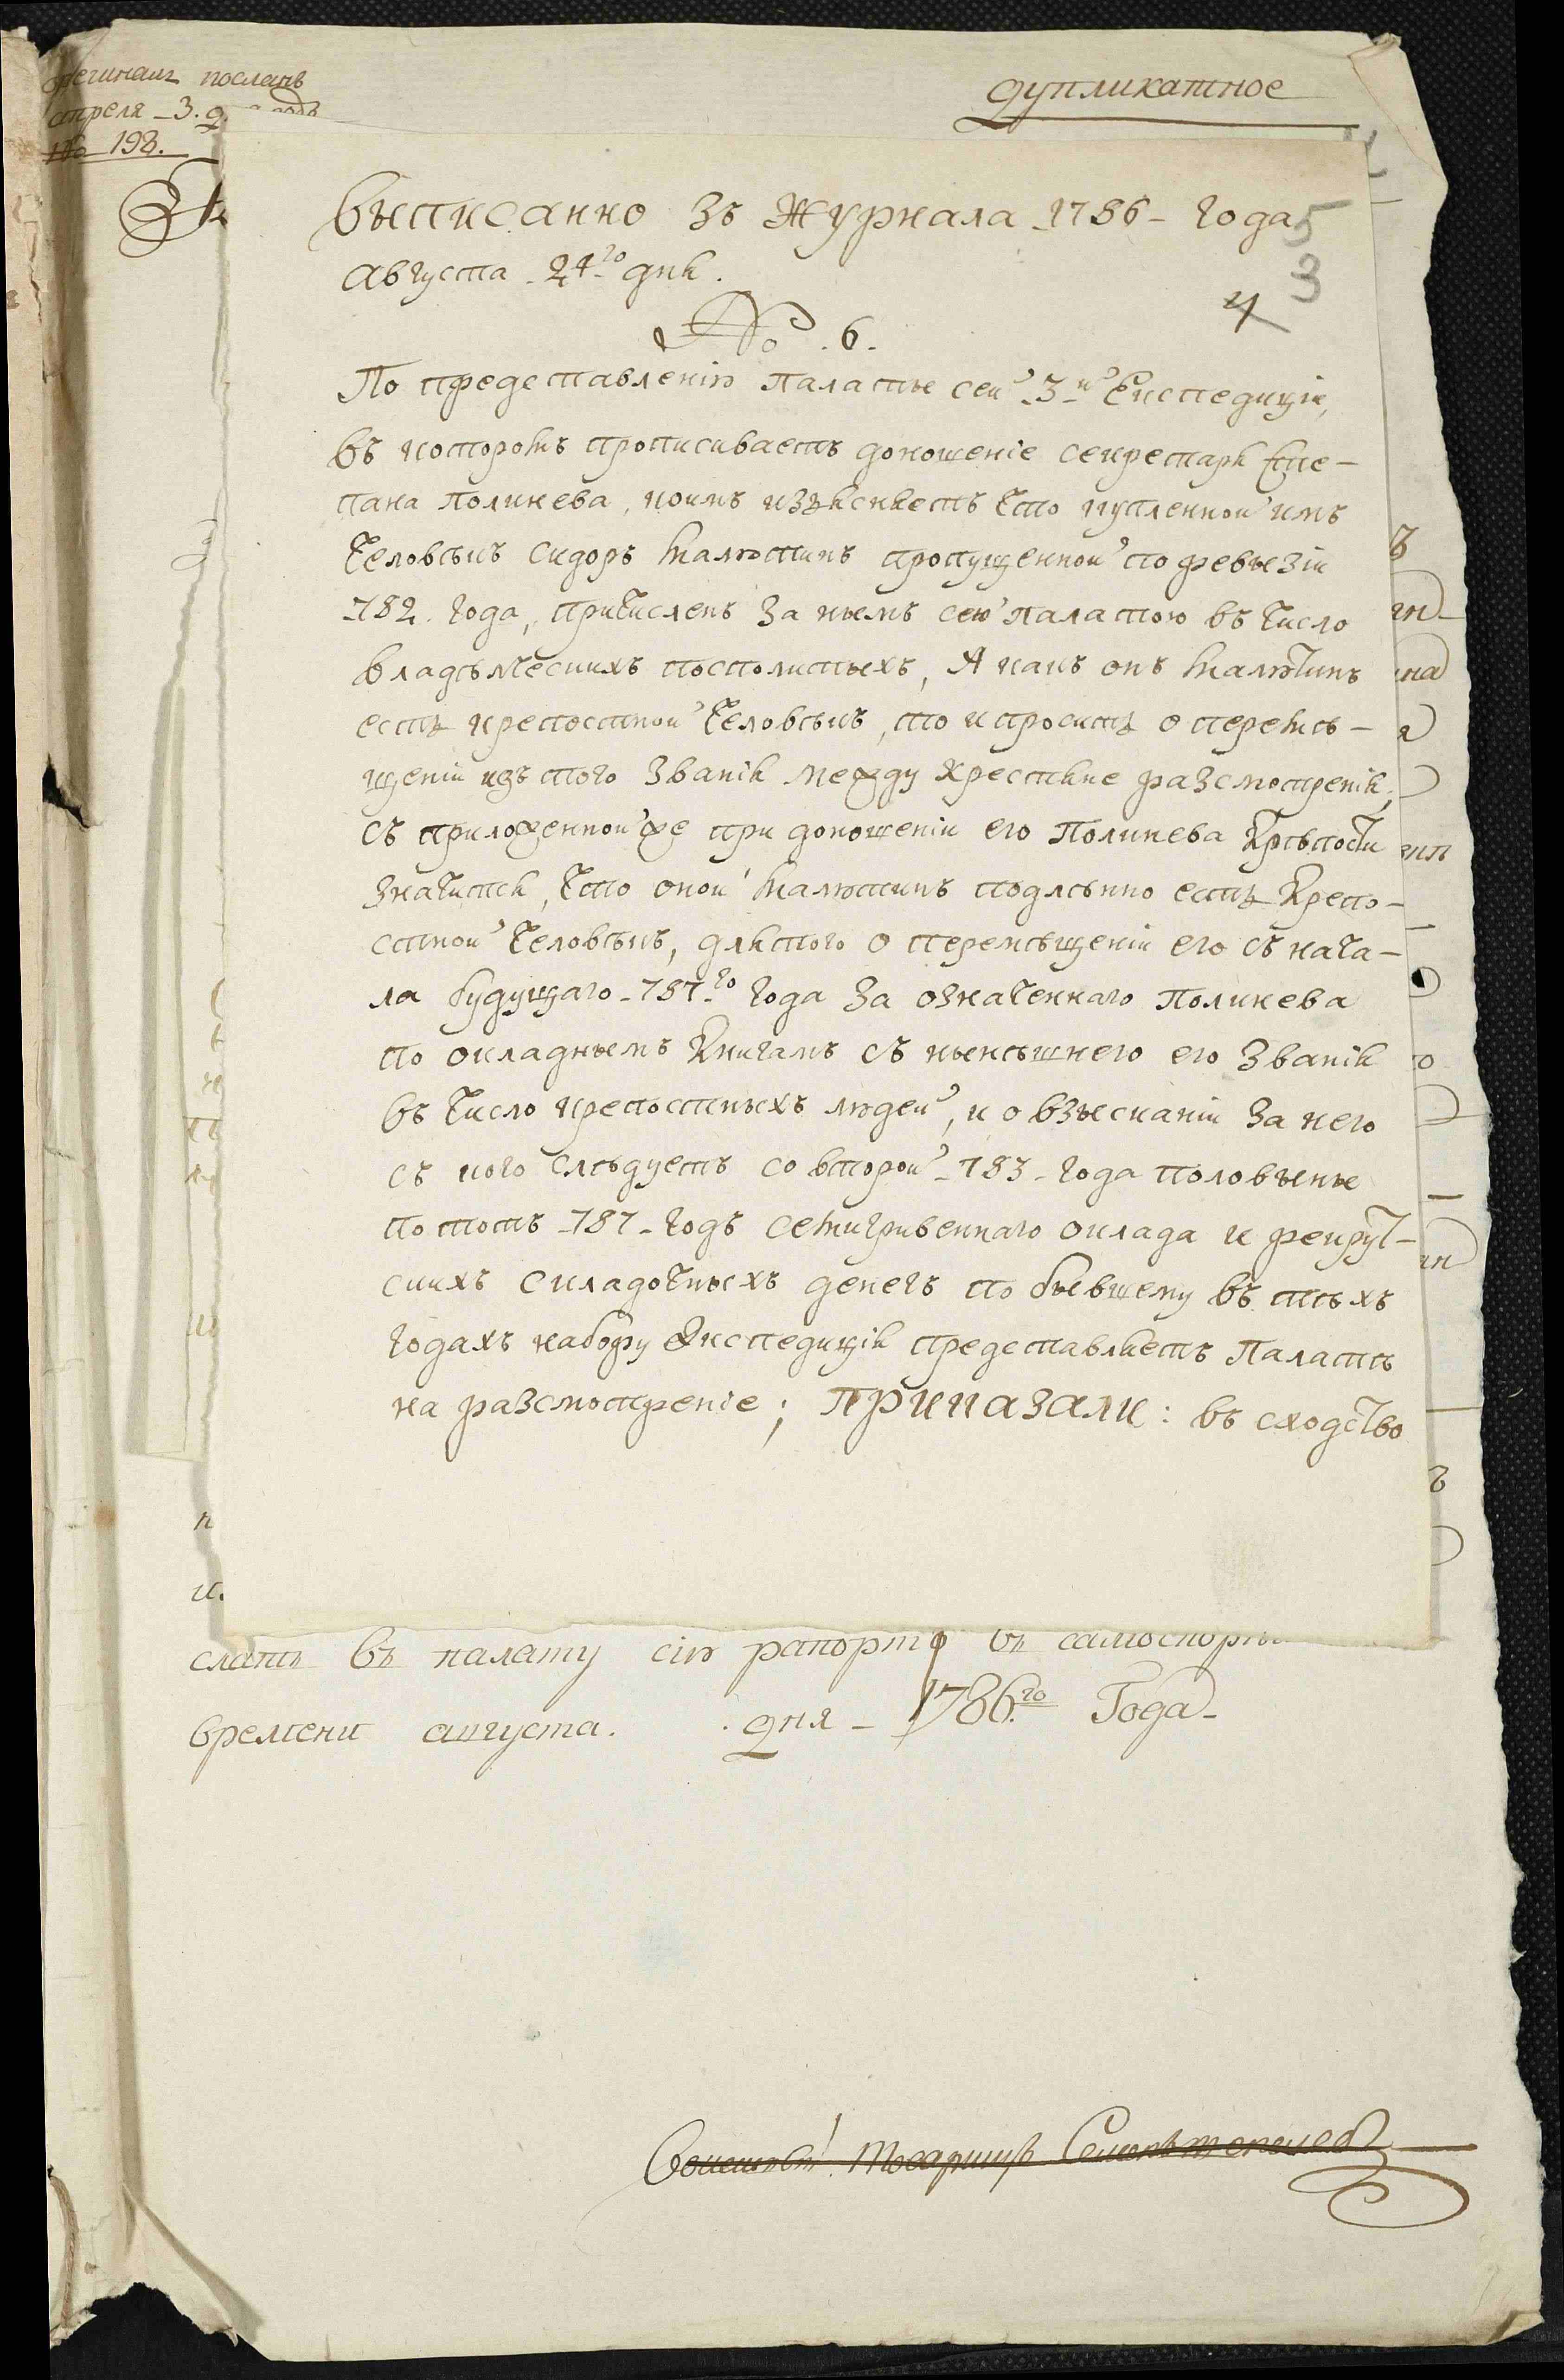 дупликатное
посланъ
апреля 3.
No 198.
выписанно зъ журнала 1786 года
августа 24го дня.
5
3
4
No. 6.
По представленію палаты сей 3й Експедиціи,
въ которомъ прописиваетъ доношеніе секретаря Сте-
пана полинева, коимъ изъясняетъ что купленной имъ
человѣкъ сидоръ малютинъ пропущенной по ревызіи
782. года, причисленъ за нымъ сею палатою въ число
владѣлческихъ посполитыхъ, А какъ онъ малютинъ
есть крепостной человѣкъ, то и проситъ о перемѣ-
щеніи изъ того званія между крестяне разсмотренія,
съ приложенной же при доношеніи его Полинева крѣпости
значится, что оной малютинъ подлѣнно есть крепо-
стной человѣкъ, для того о перемѣщеніи его съ нача-
ла будущаго 787го года за означеннаго Полинева
по окладнымъ книгамъ съ нынѣшнего его званія
въ число крепостныхъ людей, и о взысканіи за него
съ кого слѣдуетъ со второй 783 года половыны
по тотъ 787 годъ семигривеннаго оклада и рекрут-
скихъ складочныхъ денегъ по бывшему въ тѣхъ
годахъ набору Экспедиція представляетъ Палатѣ
на разсмотреніе; приказали: въ сходство
слать въ палату сію рапортъ въ
времени августа. дня 1786.го Года